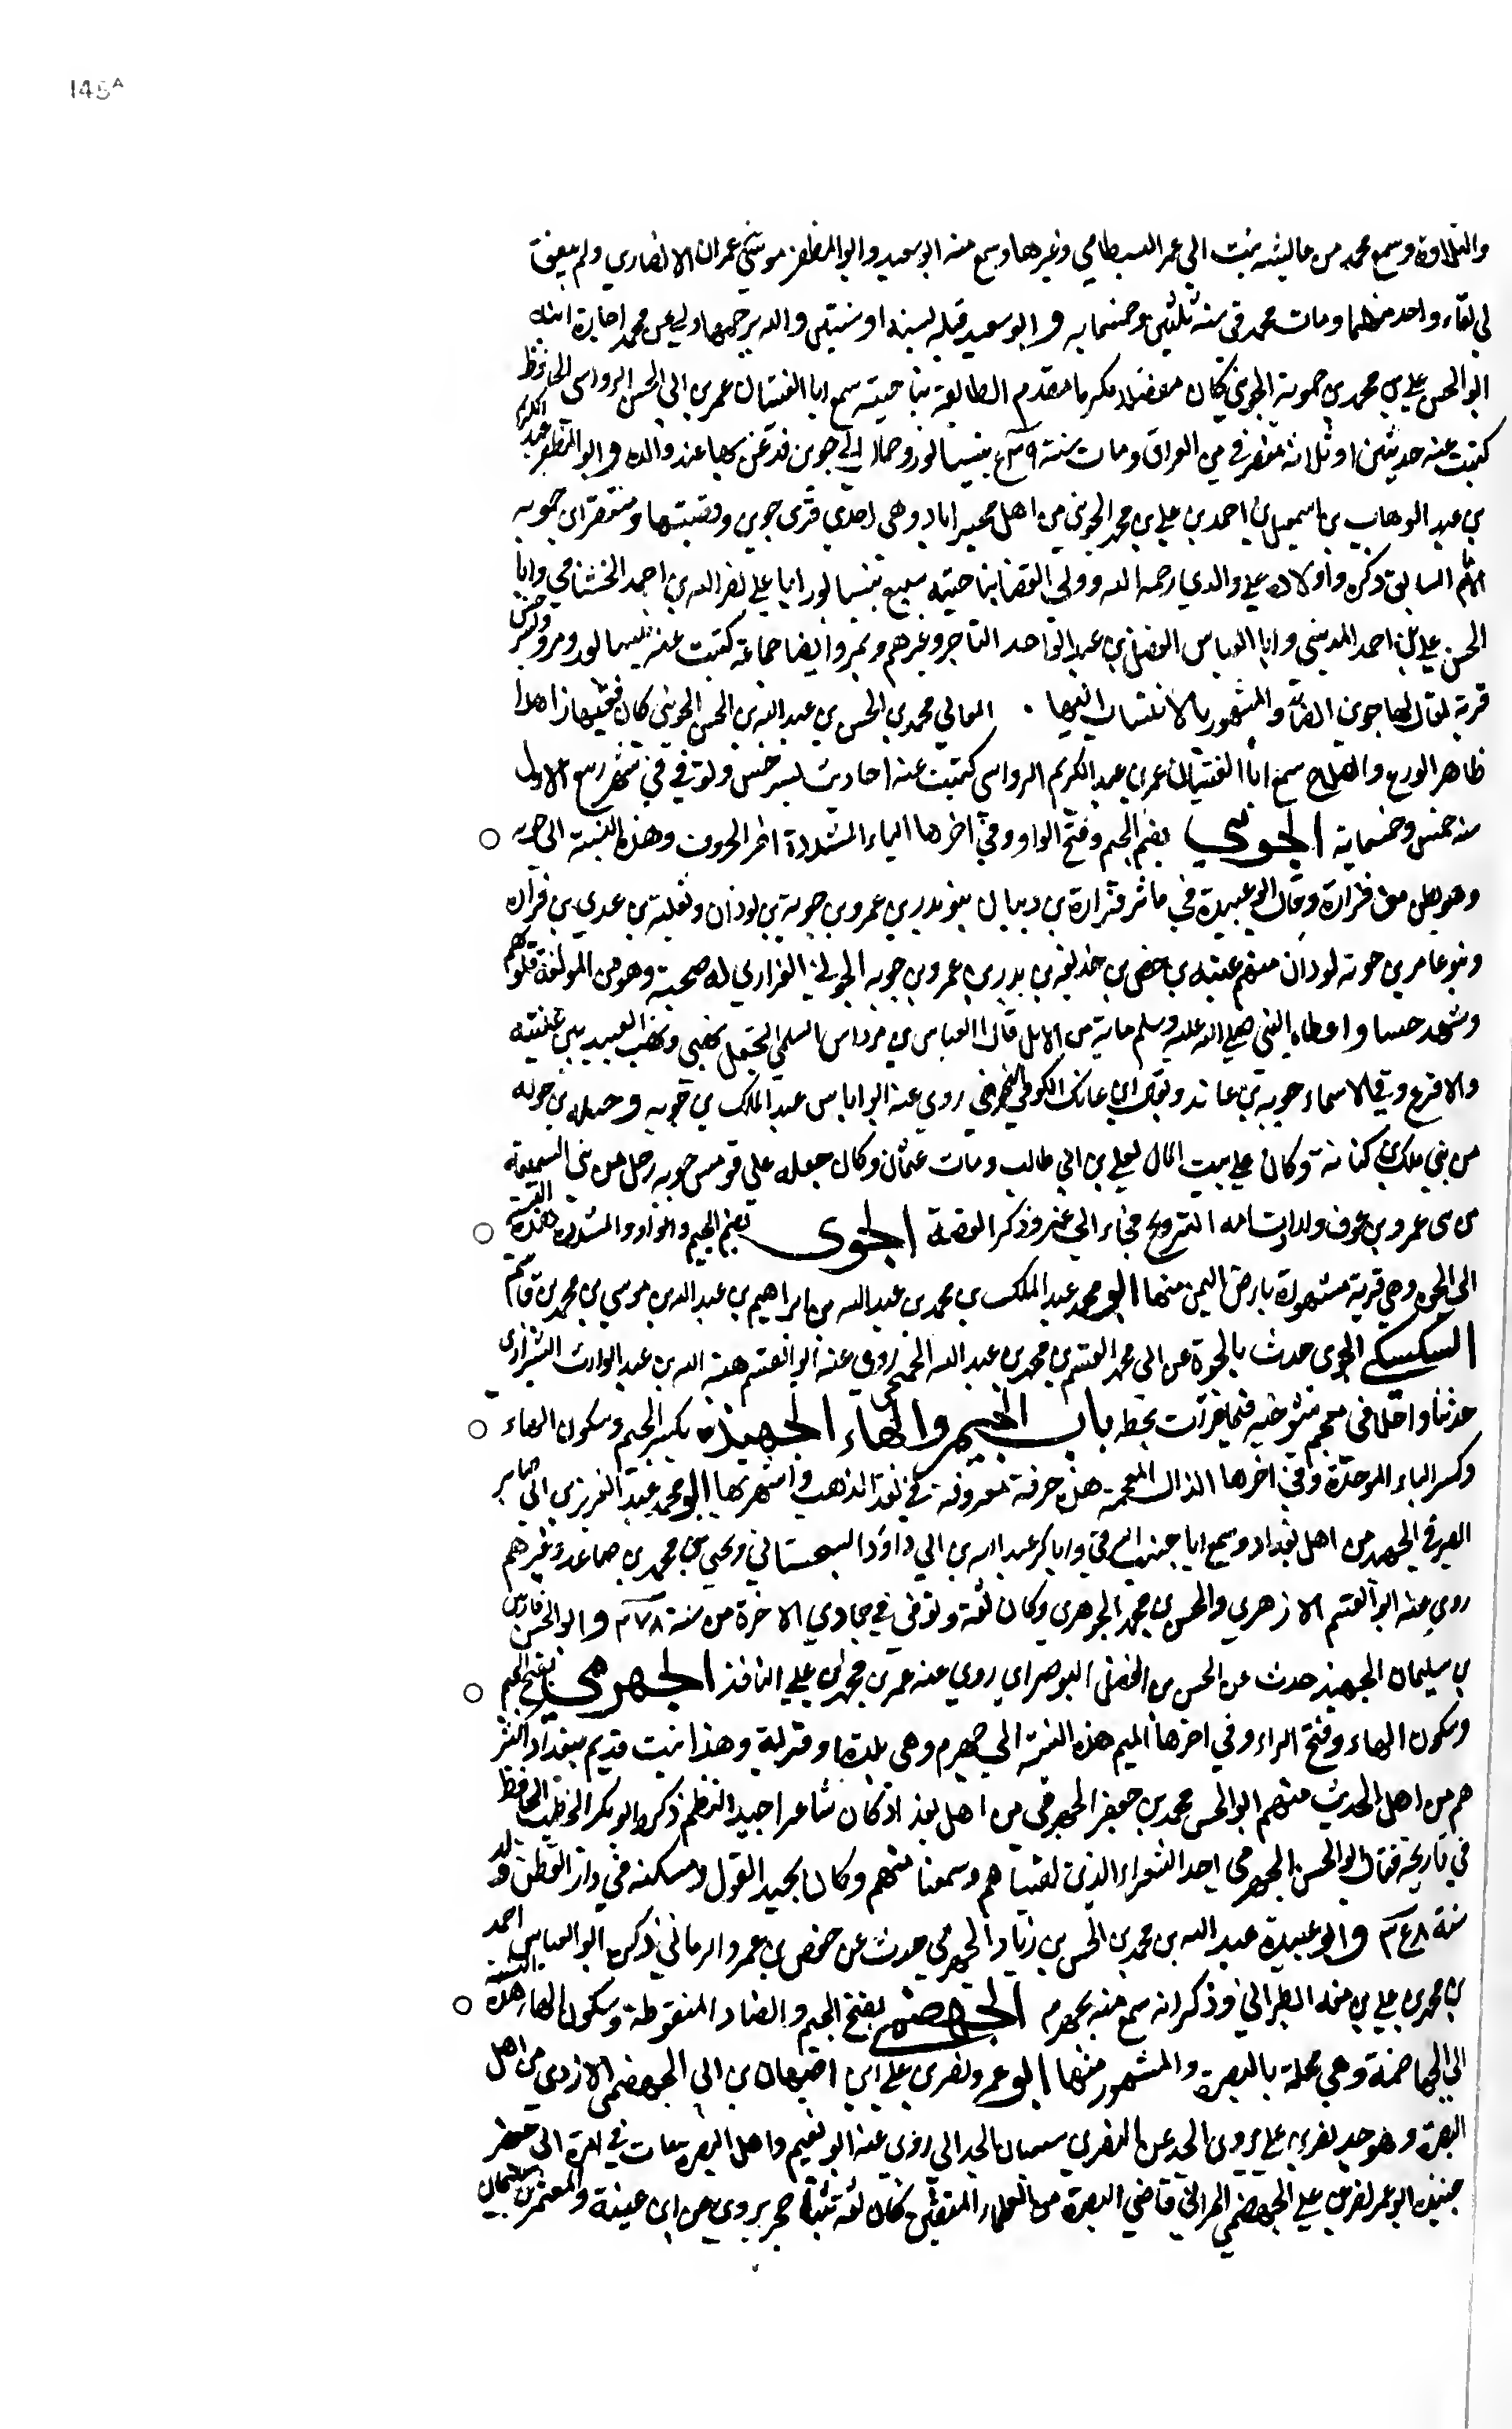 145A
والتلاوة وسمع محمد من عائشة بنت ابي عمر البسطامي وغيرها وسمع منه ابو سعيد وابو المظفر موسى بن عمران الانصاري ولم يتفق
لي لقاء واحد منهما ومات محمد في سنة ثلثين وخمسماية و ابو سعيد قبله بسنة او سنتين والله يرحمهما ولي عن محمد اجازة ابنه
ابو الحسن علي بن محمد بن حموية الجويني كان مفضلا مكرما مقدم الطائفة بناحيته سمع ابا الفتيان عمر بن ابي الحسن الرواسي الحافظ
كتبت عنه حديثين او ثلاثة منصرفي من العراق ومات سنة بنيسابور وحمل الى جوين فدفن بها عند والده و ابو المظفر عبد الكريم
بن عبد الوهاب بن اسمعيل بن احمد بن علي بن محمد الجويني من اهل بحيراباد وهي احدى قرى جوين وقصبتها ومستقر ابن حموية
الامام السابق ذكره واولاده علي والدي رحمه الله وولي القضا بناحيته سمع بنيسابور ابا علي نصر الله بن احمد الخشنامي وابا
الحسن علي بن احمد المديني وابا العباس الفضل بن عبد الواحد التاجر وغيرهم وبمرو ايضا جماعة كتبت عنه بنيسابور ومرو وبسرخس
قرية يقال لها جوين ايضا والمشهور بالانتساب اليها المعالي محمد بن الحسن بن عبد الله بن الحسن الجويني كان فقيها زاهدا
ظاهر الورع والصلاح سمع ابا الفتيان عمر بن عبد الكريم الرواسي كتبت عنه احاديث بسرخس وتوفي في شهر ربيع الاول
سنة خمس وخمسماية الجوني بضم الجيم وفتح الواو وفي اخرها الياء المشددة اخر الحروف وهذه النسبة الى جويه
وهو بطن من فزارة وقال ابو عبيدة في ماثر فزارة بن ذبيان بنو بدر بن عمرو بن جوية بن لوذان وثعلبة بن عدي بن فزاره
وبنو عامر بن جوية لوذان منهم عيينة بن حصن بن حذيفة بن بدر بن عمرو بن جويه الجوني الفزاري له صحبة وهو من المولفة قلوبهم
وشهد حنينا واعطاه النبي صلى الله عليه وسلم ماية من الابل قال العباس بن مرداس السلمي اتجعل نهبي ونهب العبيد بين عيينة
والاقرع وفي الاسماء جوية بن عائذ ويقال ابن عاتك الكوفي النحوي روي عنه ابو اناس عبد الملك بن جويه و جميله بن جويه
من بني ملك بن كنانة وكان علي بيت المال لعلي بن ابي طالب ومات عثمان وكان جعله علي قومس جويه رجل من بني السميعة
من بني عمرو بن عوف ولدات امه التزويج فجاء الى عمر وذكر القصة الجوى بضم الجيم والواو والمشددة هذه النسبة
الى الجوه وهي قرية مشهورة بارض اليمن منها ابو محمد عبد الملك بن محمد بن عبد الله بن ابراهيم بن عبد الله بن موسي بن محمد بن قاسم
السكسكي الجوى حدث بالجوة عن ابي محمد القسم بن محمد بن عبد الله الجمحي روى عنه ابو القسم هبة الله بن عبد الوارث الشيرازي
حدثنا واحدا في معجم شيوخه فيما قرات بخطه باب الجيم والهاء الجهبذ بكسر الجيم وسكون الهاء
وكسر الباء الموحدة وفي اخرها الذال المعجمة هذه حرفة معروفة في نقد الذهب واشتهر بها ابو محمد عبد العزيز بن ابي صابر
الصيرفي الجهبذ من اهل بغداد وسمع ابا وابا بكر عبد الله بن ابي داؤد السجستاني ويحيى بن محمد بن صاعد وغيرهم
روي عنه ابو القسم الازهري والحسن بن محمد الجوهري وكان ثقة وتوفي في جمادي الاخرة من سنة ٣٧٨ و ابو الحسن فارس
بن سليمان الجهبذ حدث عن الحسن بن الفضل البوصراي روي عنه عمر بن محمد بن علي الناقد الجهرمي بفتح الجيم
وسكون الهاء وفتح الراء وفي اخرها الميم هذه النسبة الى جهرم وهي بلدة او قرية وهذا بيت قديم ببغداد اكثر
هم من اهل الحديث منهم ابو الحسن محمد بن جعفر الجهرمي من اهل بغداد كان شاعرا جيد النظم ذكره ابو بكر الخطيب الحافظ
في تاريخه فقال ابو الحسن الجهرمي احد الشعراء الذين لقيناهم وسمعنا منهم وكان يجيد القول ومسكنه في دار القطن ولد
سنة و ابو عبيدة عبد الله بن محمد بن الحسن بن زياد الجهرمي حدث عن حفص بن عمرو الرماني ذكره ابو العباس احمد
بن محمد بن علي بن الطبراني وذكر انه سمع منه بجهرم الجهضمي بفتح الجيم والضاد المنقوطة وسكون الهاء هذه النسبة
الى الجهاضمة وهي محلة بالبصرة والمشهور منها ابو عمرو نصر بن علي بن اصبهان بن ابي الجهضمي الازدي من اهل
البصرة وهو جد نصر بن علي يروى الجد عن النضر بن شيبان الحداني روى عنه ابو نعيم واهل البصرة مات في امرة ابي جعفر
حفيده ابو عمرو نصر بن علي الجهضمي قاضي البصرة من العلماء المتقنين كان ثقة ثبتا يروي عن ابن عيينة والمعتمر بن سليمان